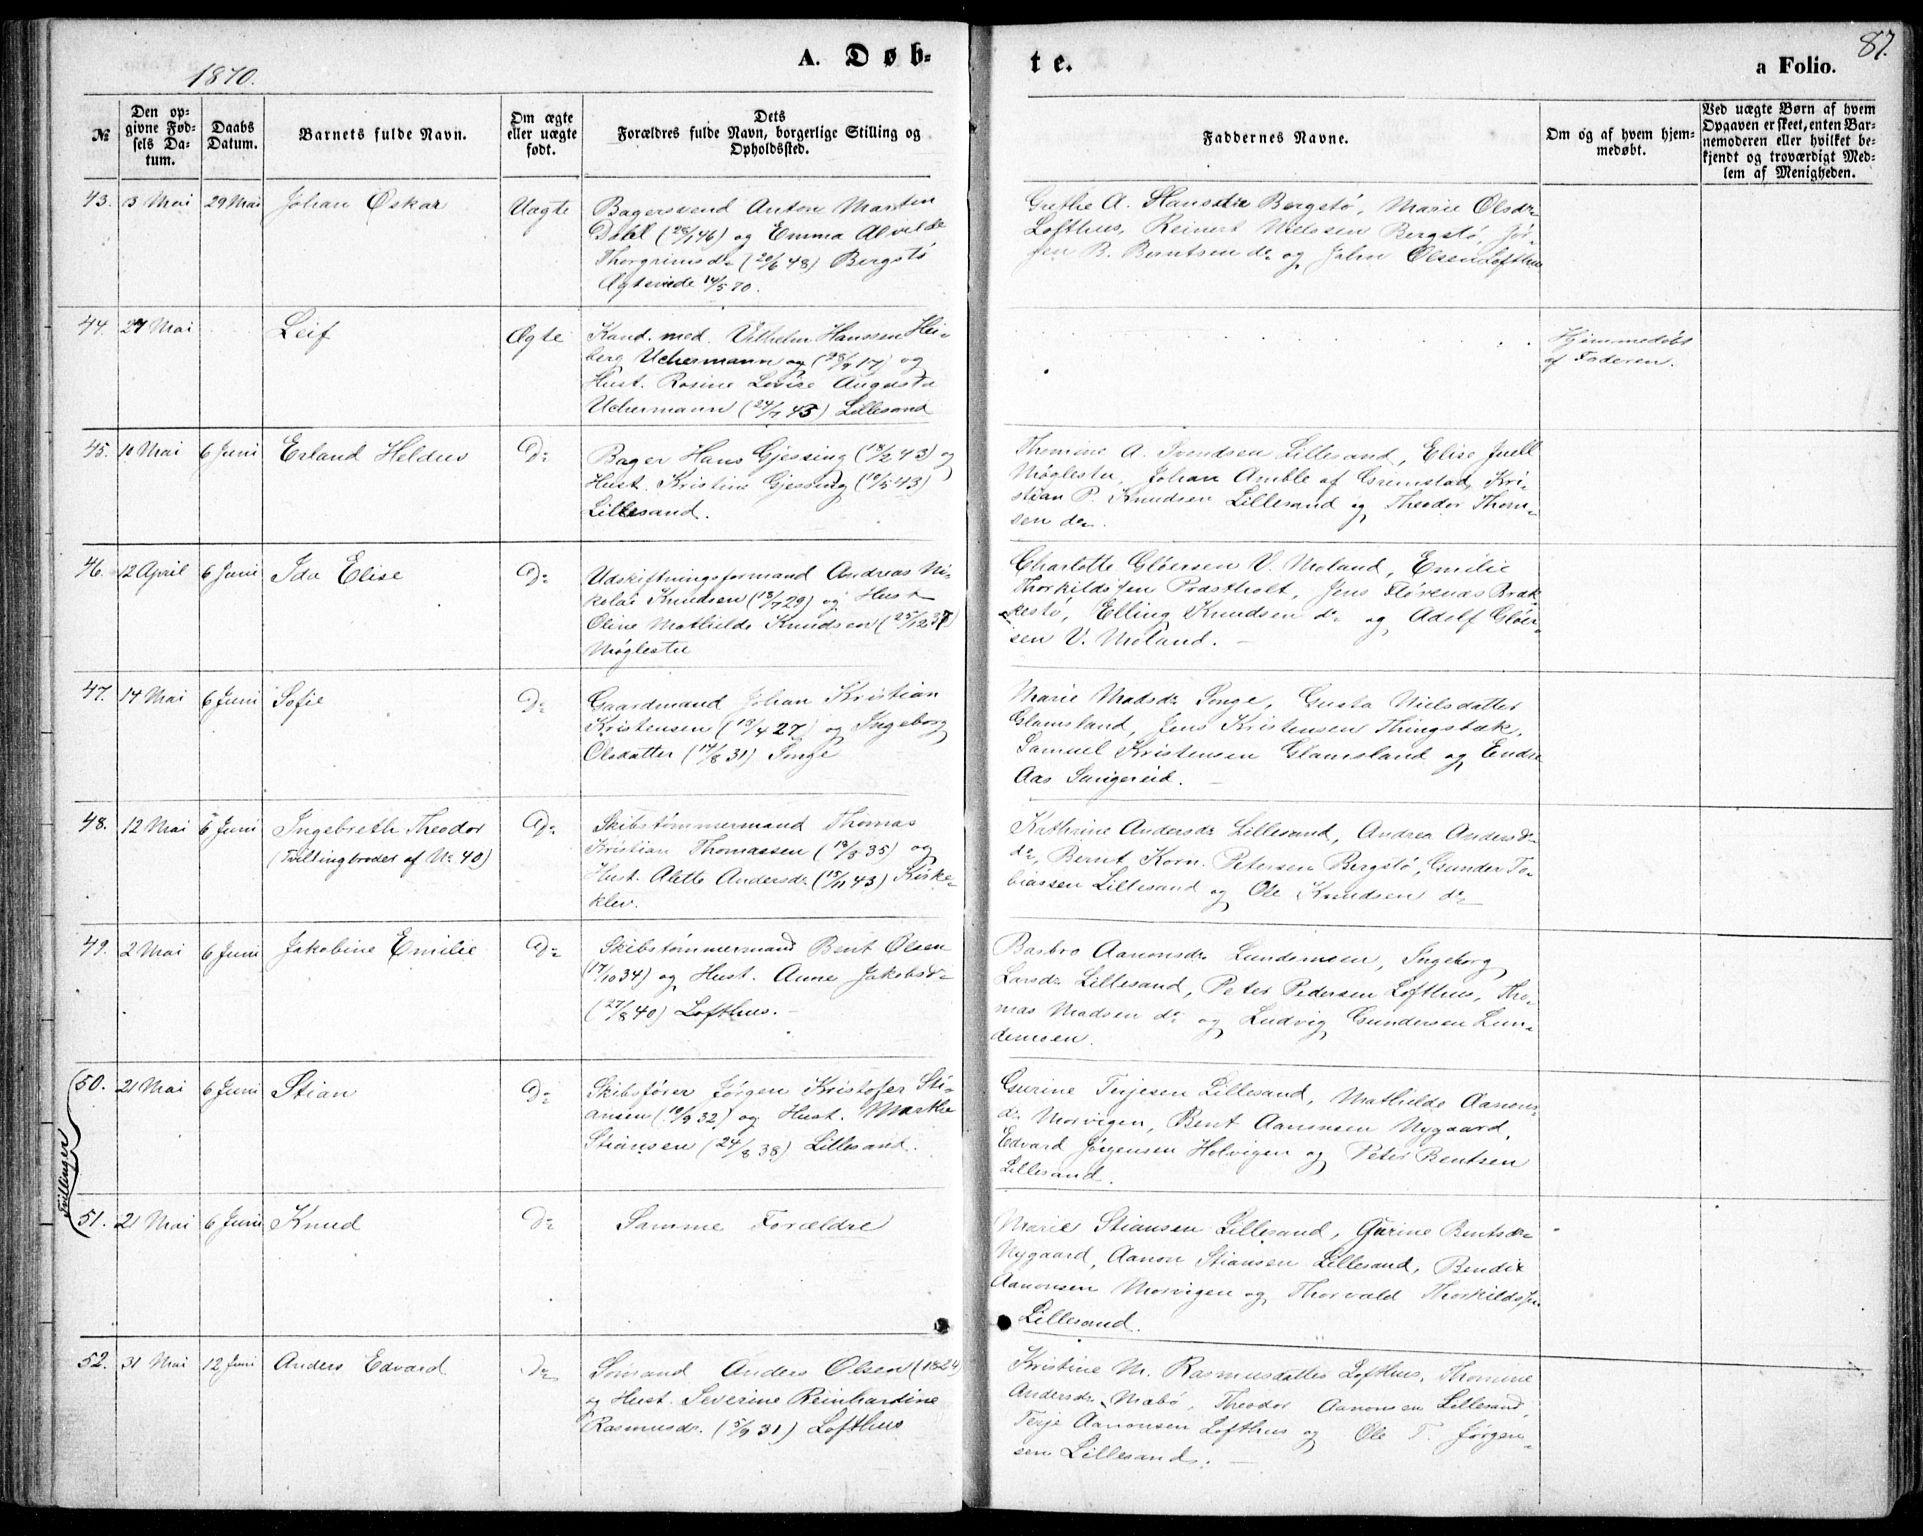 1870.
A. Døb-
te.
a Folio.
87.
№
Den op-
givne Fød-
sels Da-
tum.
Daabs
Datum.
Barnets fulde Navn.
Om ægte
eller uægte
født.
Dets
Forældres fulde Navn, borgerlige Stilling og
Opholdssted.
Faddernes Navne.
Om og af hvem hjem-
medøbt.
Ved uægte Børn af hvem
Opgaven er skeet, enten Bar-
nemoderen eller hvilket be-
kjendt og troværdigt Med-
lem af Menigheden.
43. 3 Mai 29 Mai Johan Oskar Uægte
Bagersvend Anton Marten
Dahl (28/1 46) og Emma Alvilde
Thorgrimsdr (20/6 48) Bergstø
Ægteviede 14/5 70.
Grethe A. Hansdtr Bergstø, Marie Olsdr
Lofthus, Reinert Nielsen Bergstø, Jør-
gen B. Berntsen do og John Olsen Lofthus
44. 27 Mai Leif Ægte
Kand. med. Vilhelm Hanssen Hei-
berg Uchermann og (28/7 17) og
Hust. Rosine Lovise Augusta
Uchermann (24/7 43) Lillesand
Hjemmedøbt
af Faderen.
45. 10 Mai 6 Juni Erland Heldus Do
Bager Hans Gjessing (18/2 43) og
Hust. Kristine Gjessing (19/5 43)
Lillesand.
Thomine A. Svendsen Lillesand, Elise Juell
Møglestu, Johan Amble af Grimstad, Kri-
stian P. Knudsen Lillesand og Theodor Thom-
sen do.
46. 12 April 6 Juni Ida Elise Do
Udskiftningsformand Andreas Ni-
kolai Knudsen (18/7 29) og Hust
Oline Mathilde Knudsen (25/12 37)
Møglestu
Charlotte Gløersen V. Moland, Emilie
Thorkildsen Præstholt, Jens Flørenæs Bræk-
kestø, Elling Knudsen do og Adolf Gløer-
sen V. Moland.
47. 14 Mai 6 Juni Sofie Do
Gaardmand Johan Kristian
Kristensen (18/4 27) og Ingeborg
Olsdatter (14/8 31) Tonge
Marie Madsdr Tonge, Gusta Nielsdatter
Glamsland, Jens Kristensen Thingsbæk,
Samuel Kristensen Glamsland og Endre
Aas Sangereid.
48. 12 Mai 6 Juni Ingebreth Theodor Do
(Tvillingbroder af No 40)
Skibstømmermand Thomas
Kristian Thomassen (18/3 35) og
Hust. Alette Andersdr (15/11 43) Kirke-
klev.
Kathrine Andersdr Lillesand, Andrea Andersdr
do, Bernt Korn. Petersen Bergstø, Gunder To-
biassen Lillesand og Ole Knudsen do
49. 2 Mai 6 Juni Jakobine Emilie Do
Skibstømmermand Bent Olsen
(17/10 34) og Hust. Anne Jakobsdr
(27/8 40) Lofthus.
Basbro Aanonsdr Lundemoen, Ingeborg
Larsdr Lillesand, Peter Pedersen Lofthus, Tho-
mas Madsen do og Ludvig Gundersen Lun-
demoen.
Tvillinger
50. 21 Mai 6 Juni Stian Do
Skibsfører Jørgen Kristofer Sti-
ansen (19/9 32) og Hust. Marthe
Stiansen (24/8 38) Lillesand.
Gurine Terjesen Lillesand, Mathilde Aanons-
dr Morvigen, Bent Aanonsen Nygaard,
Edvard Jørgensen Holvigen og Peter Bentsen
Lillesand.
51. 21 Mai 6 Juni Knud Do
Samme Forældre
Marie Stiansen Lillesand, Gurine Bentsdr
Nygaard, Aanon Stiansen Lillesand, Bendix
Aanonsen Morvigen og Thorvald Thorkildsen
Lillesand.
52. 31 Mai 12 Juni Anders Edvard Do
Sømand Anders Olsen (1824)
og Hust. Severine Reinhardine
Rasmusdr. (5/9 31) Lofthus
Kristine M. Rasmusdatter Lofthus, Thomine
Andersdr Mabø, Theodor Aanonsen Lillesand,
Terje Aanonsen Lofthus og Ole T. Jørgen-
sen Lillesand.